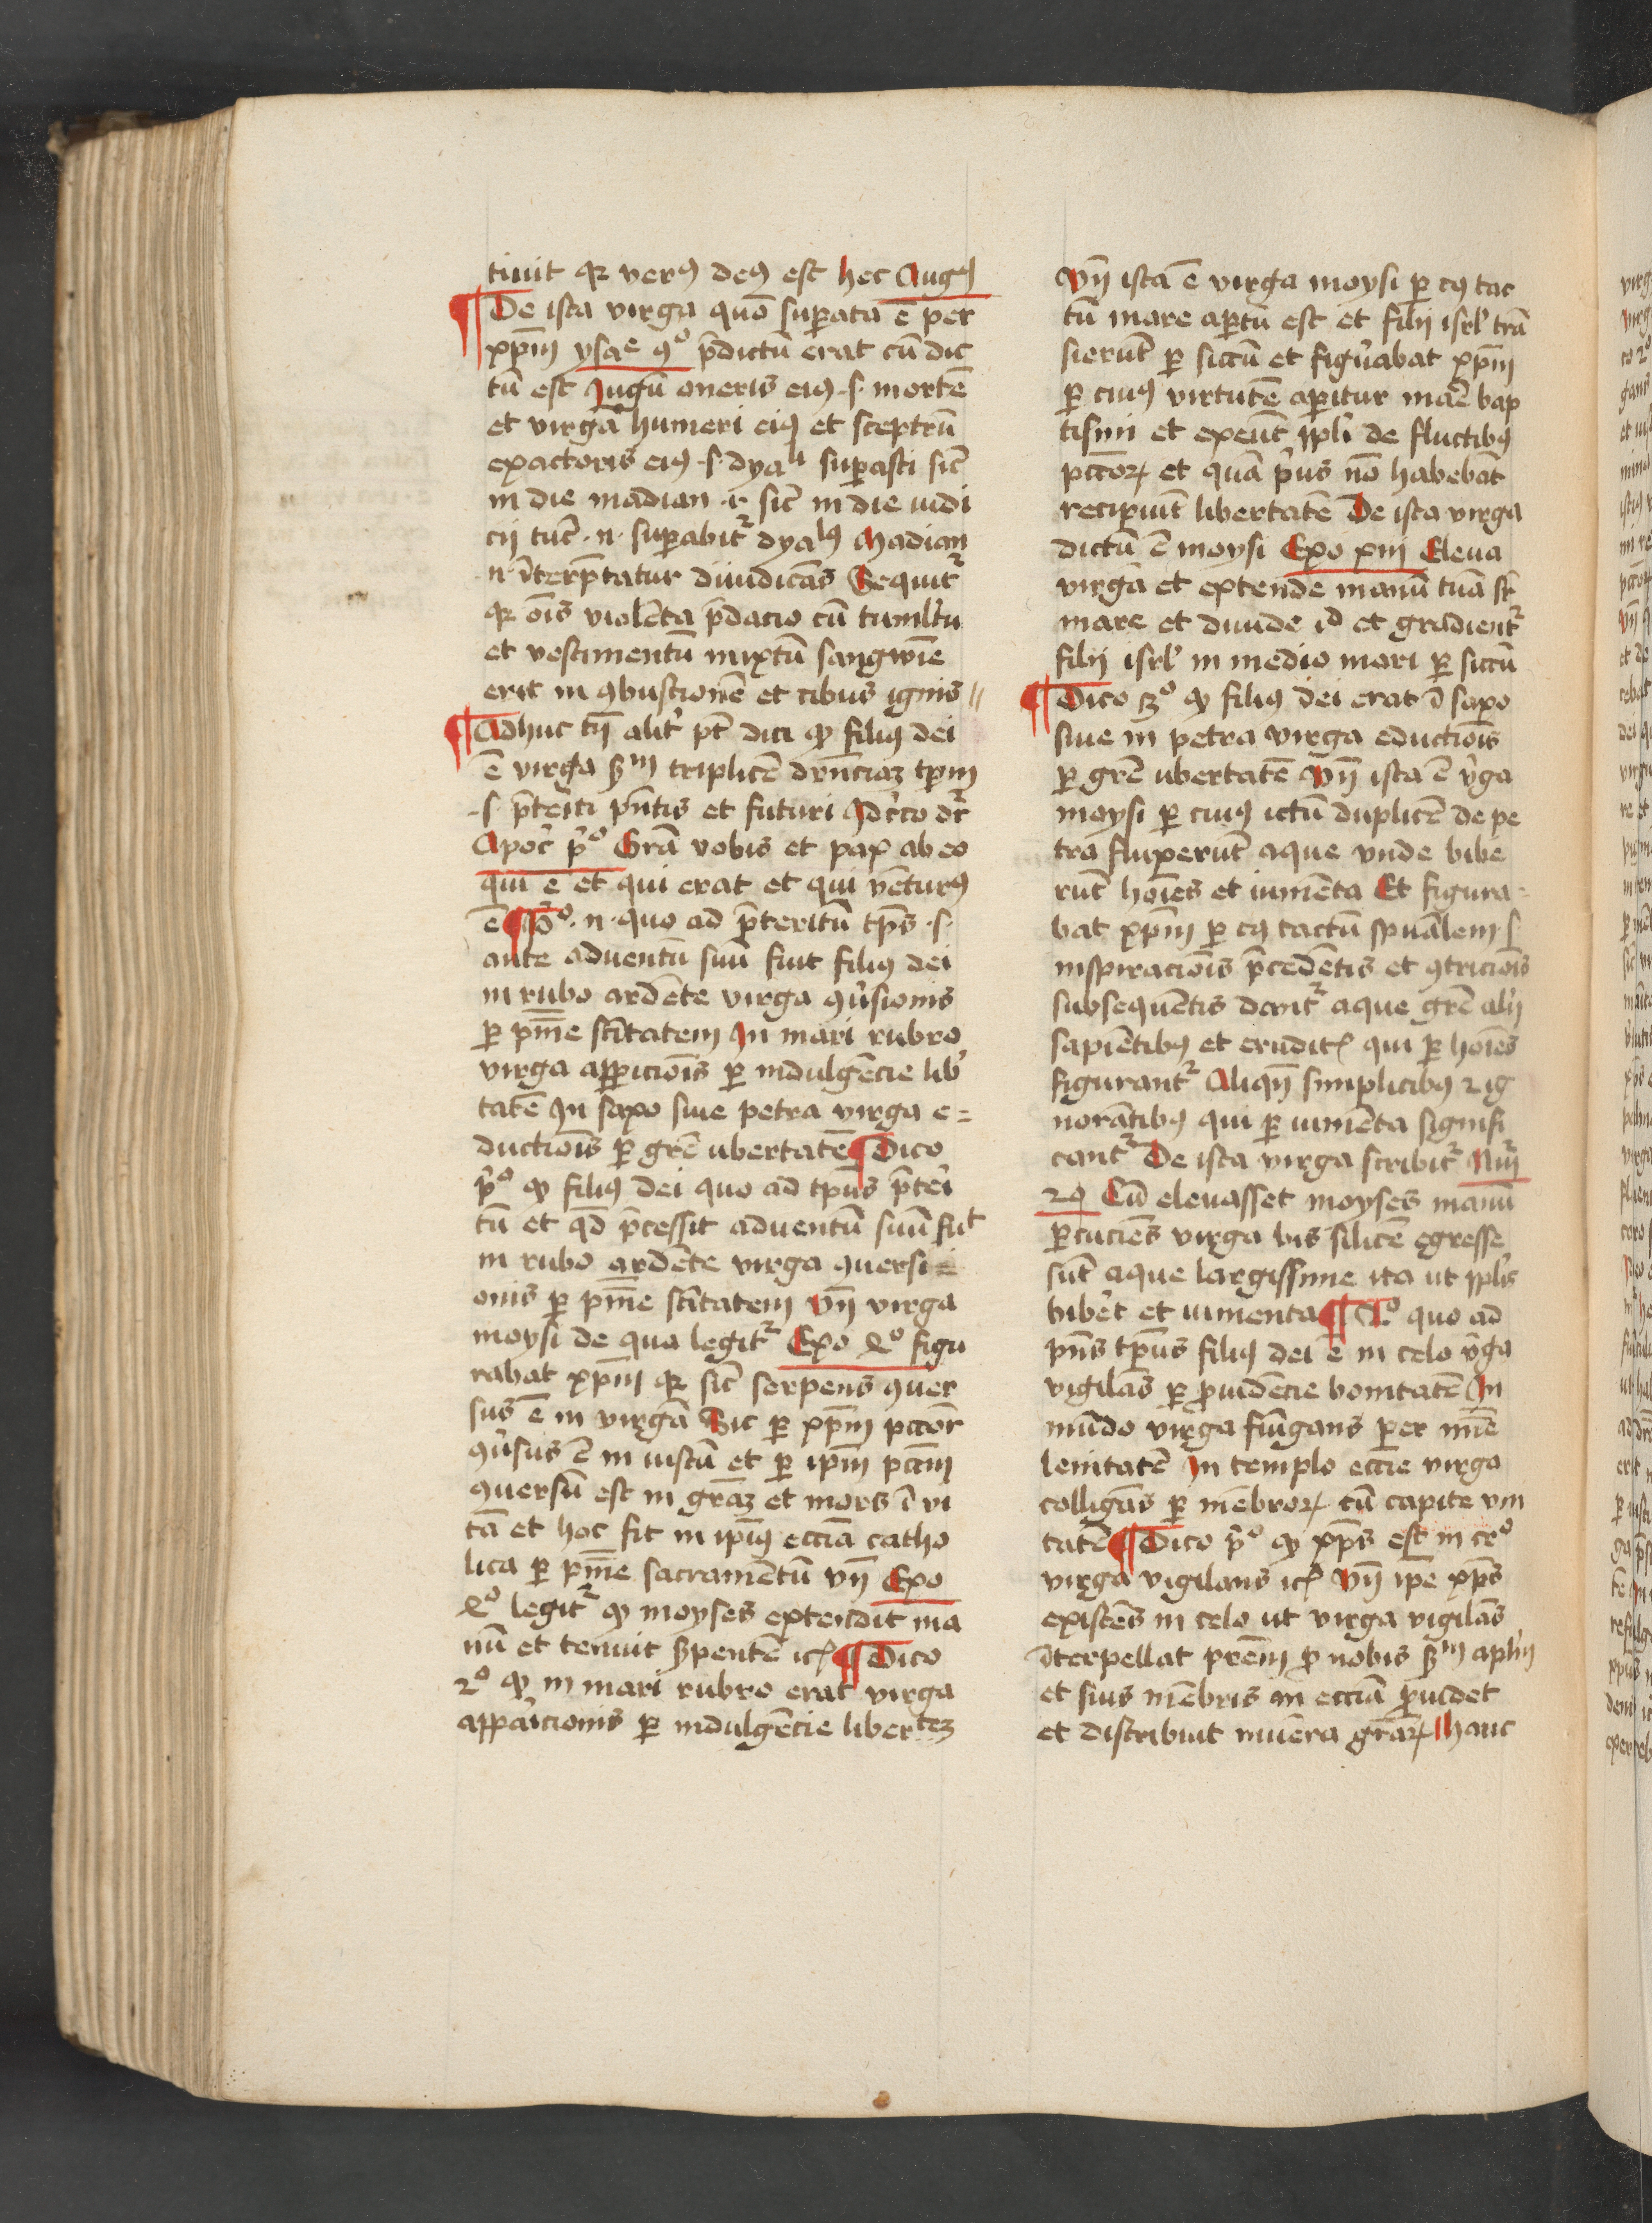 tinit qꝛ verꝰ deꝰ est hec Augꝰ
¶ De ista virga quō suꝑata ē per
xp̄m ysaᵉ 9º p̄dictū erat cū dic
tū est Jugū oneris eiꝰ .s. mortē
et virgā humeri eiꝰ et sceptrū
exactoris eiꝰ .s. dyaˡⁱ suꝑasti sic̄
in die madian .i. sic̄ in die iudi
cij tūc .n. suꝑabitᷣ dyaˡꝰ Madian
.n. īterp̄tatur diiudicās Sequitᷣ
qꝛ oīs violēta p̄dacio cū tumltu
et vestimentū mixtū sangwīe
erit in ꝯbustionē et cibus ignis //
¶ Adhuc tn̄ alit̄ pt̄ dici ꝙ filiꝰ dei
ē virga ẜm triplicē drn̄ciaꝫ tp̄m
.s. p̄teriti p̄ntis et futuri Jdc̄co dr̄
Apoc̄ p̄º Grā vobis et pax ab eo
qui ē et qui erat et qui vēturꝰ
ē ¶ pº .n. quo ad p̄teritū tp̄s .s.
ante aduentū suū fuit filiꝰ dei
in rubo ardēte virga ꝯūsionis
ꝑ pn̄īe sc̄itatem Jn mari rubro
virga apꝑicionīs ꝑ indulgēcie lib̄
tatē Jn saxo siue petra virga e=
ductionīs ꝑ grē ubertatē ¶ Dico
p̄º ꝙ filiꝰ dei quo ad tp̄us p̄teri
tū et qd̄ p̄cessit aduentū suū fuᵗ
in rubo ardēte virga ꝯuersi
onis ꝑ pn̄īe sc̄itatem Vn̄ virga
moysi de qua legitᷣ Exo 4º figu
rabat xp̄m qꝛ sic̄ serpens ꝯuer
sus ē in virgā Sic ꝑ xp̄m pcc̄or
ꝯūsus ē in iustū et ꝑ ip̄m pcc̄m
ꝯuersū est in grāꝫ et mors ī vi
tā et hoc fit in ip̄iꝰ ecc̄ia catho
lica ꝑ pn̄īe sacramētū vn̄ Exo
4º legitᷣ ꝙ moyses extendit ma
nū et tenuit ẜpentē ꝛcꝭ ¶ Dico
2º ꝙ in mari rubro erat virga
apparicionis ꝑ indulgēcie liberᵗᵉꝫ
Vn̄ ista ē virga moysi ꝑ cꝰ tac
tū mare aꝑtū est et filij isrl̄ trā
sierūt ꝑ siccū et figūabat xp̄m
ꝑ cuiꝰ virtutē aꝑitur marē bap
tismi et exeūt ppl̄i de fluctibꝰ
pcc̄oꝝ et quā p̄us nō habebāt
recipiūt libertatē De ista virga
dictū ē moysi Exo xiiij Eleua
virgā et extende manū tuā sr̄
mare et diuide iᵈ et gradientᷣ
filij isrl̄ in medio mari ꝑ siccū
¶ Dico 3º ꝙ filiꝰ dei erat ī saxo
siue in petra virga eductionīs
ꝑ grē ubertatē Vn̄ ista ē v̄ga
moysi ꝑ cuiꝰ ictū duplicē de pe
tra fluxerūt aque vnde bibe
rūt hoīes et iumēta Et figura=
bat xp̄m ꝑ cꝰ tactū spūalem .s.
inspiracionīs p̄cedētis et ꝯtricionīs
subsequētis dantᷣ aque grē alij
sapiētibꝰ et eruditꝭ qui ꝑ hoīes
figurantᷣ Aliqn̄ simplicibꝰ ⁊ ig
norātibꝰ qui ꝑ iumēta signifi
cantᷣ De ista virga scribitᷣ Nūi
20 Cū eleuasset moyses manū
ꝑcuciēs virga bis silicē egresse
sūt aque largissime ita ut ppl̄s
bibēt et iumenta ¶ 2º quo ad
pn̄s tp̄us filiꝰ dei ē in celo v̄ga
vigilās ꝑ ꝓuidēcie bonitatē Jn
mūdo virga fūigans per mīe
lenitatē Jn templo ecc̄ie virga
colligās ꝑ mēbroꝝ cū capite vni
tatē ¶ Dico p̄º ꝙ xp̄s est in ceº
virga vigilans ꝛcꝭ Vn̄ ip̄e xp̄s
existēs in celo ut virga vigilās
īterpellat pr̄em ꝓ nobis ẜm apl̄m
et suis mēbris in ecc̄ia ꝓuidet
et distribuit munera gr̄aꝝ Hanc